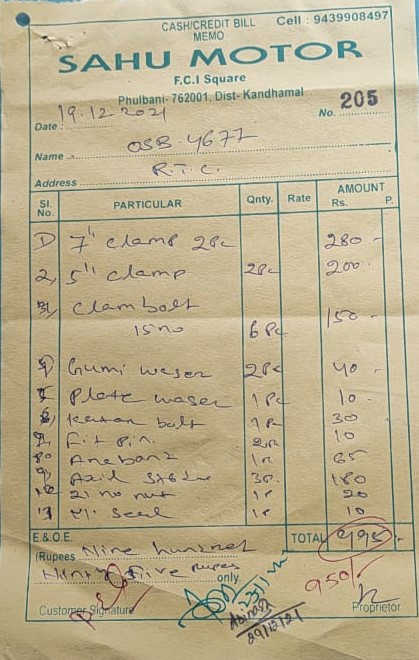 CASH/CREDIT BILL Cell : 9439908497
MEMO
SAHU MOTOR
F.C.I Square
Phulbani- 762001, Dist- Kandhamal
Date : 19.12.2021 No. 205
Name OSB 4677
Address R.T.C.
Sl. No. PARTICULAR Qnty. Rate AMOUNT Rs. P.
1) 7" clamp 2Pc 280 -
2) 5" clamp 2Pc 200 -
3) Clam bolt 150 -
15 no 6 Pc
4) Gumi waser 2Pc 40 -
5 Plate waser 1 Pc 10 -
6) bolt 1 Pc 30
Fit Pin 2Pc 10
65
9) Axil 3Pc 180
10 21 no nut 1P 20
11 Seal 1P 10
E.&O.E. TOTAL 995/-
(Rupees Nine hundred
Ninty five rupes only.
950/-
Customer Signature Proprietor
29/12/21